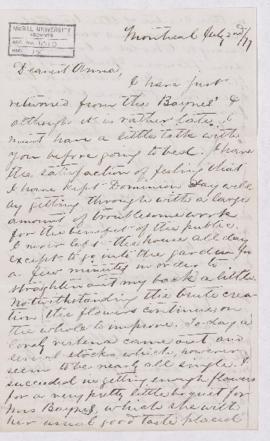 McGILL UNIVERSITY
ARCHIVES
ACC. NO. 1010
REF.
Montreal July 2nd/77
Dearest Anna,
I have just
returned from the Baynes' &
although it is rather late, I
must have a little talk with
you before going to bed. I have
the satisfaction of feeling that
I have kept Dominion Day well
by getting through with a large
amount of troublesome work
for the benefit of the public.
I never left the house all day
except to go into the garden for
a few minutes in order to
straighten out my back a little.
Notwithstanding the brute crea-
tion the flowers continue on
the whole to improve. To-day a
lovely verbena came out and
several stocks which, however,
seem to be nearly all single. I
succeeded in getting enough flowers
for a very pretty little boquet for
Mrs Baynes, which she with
her usual good taste placed